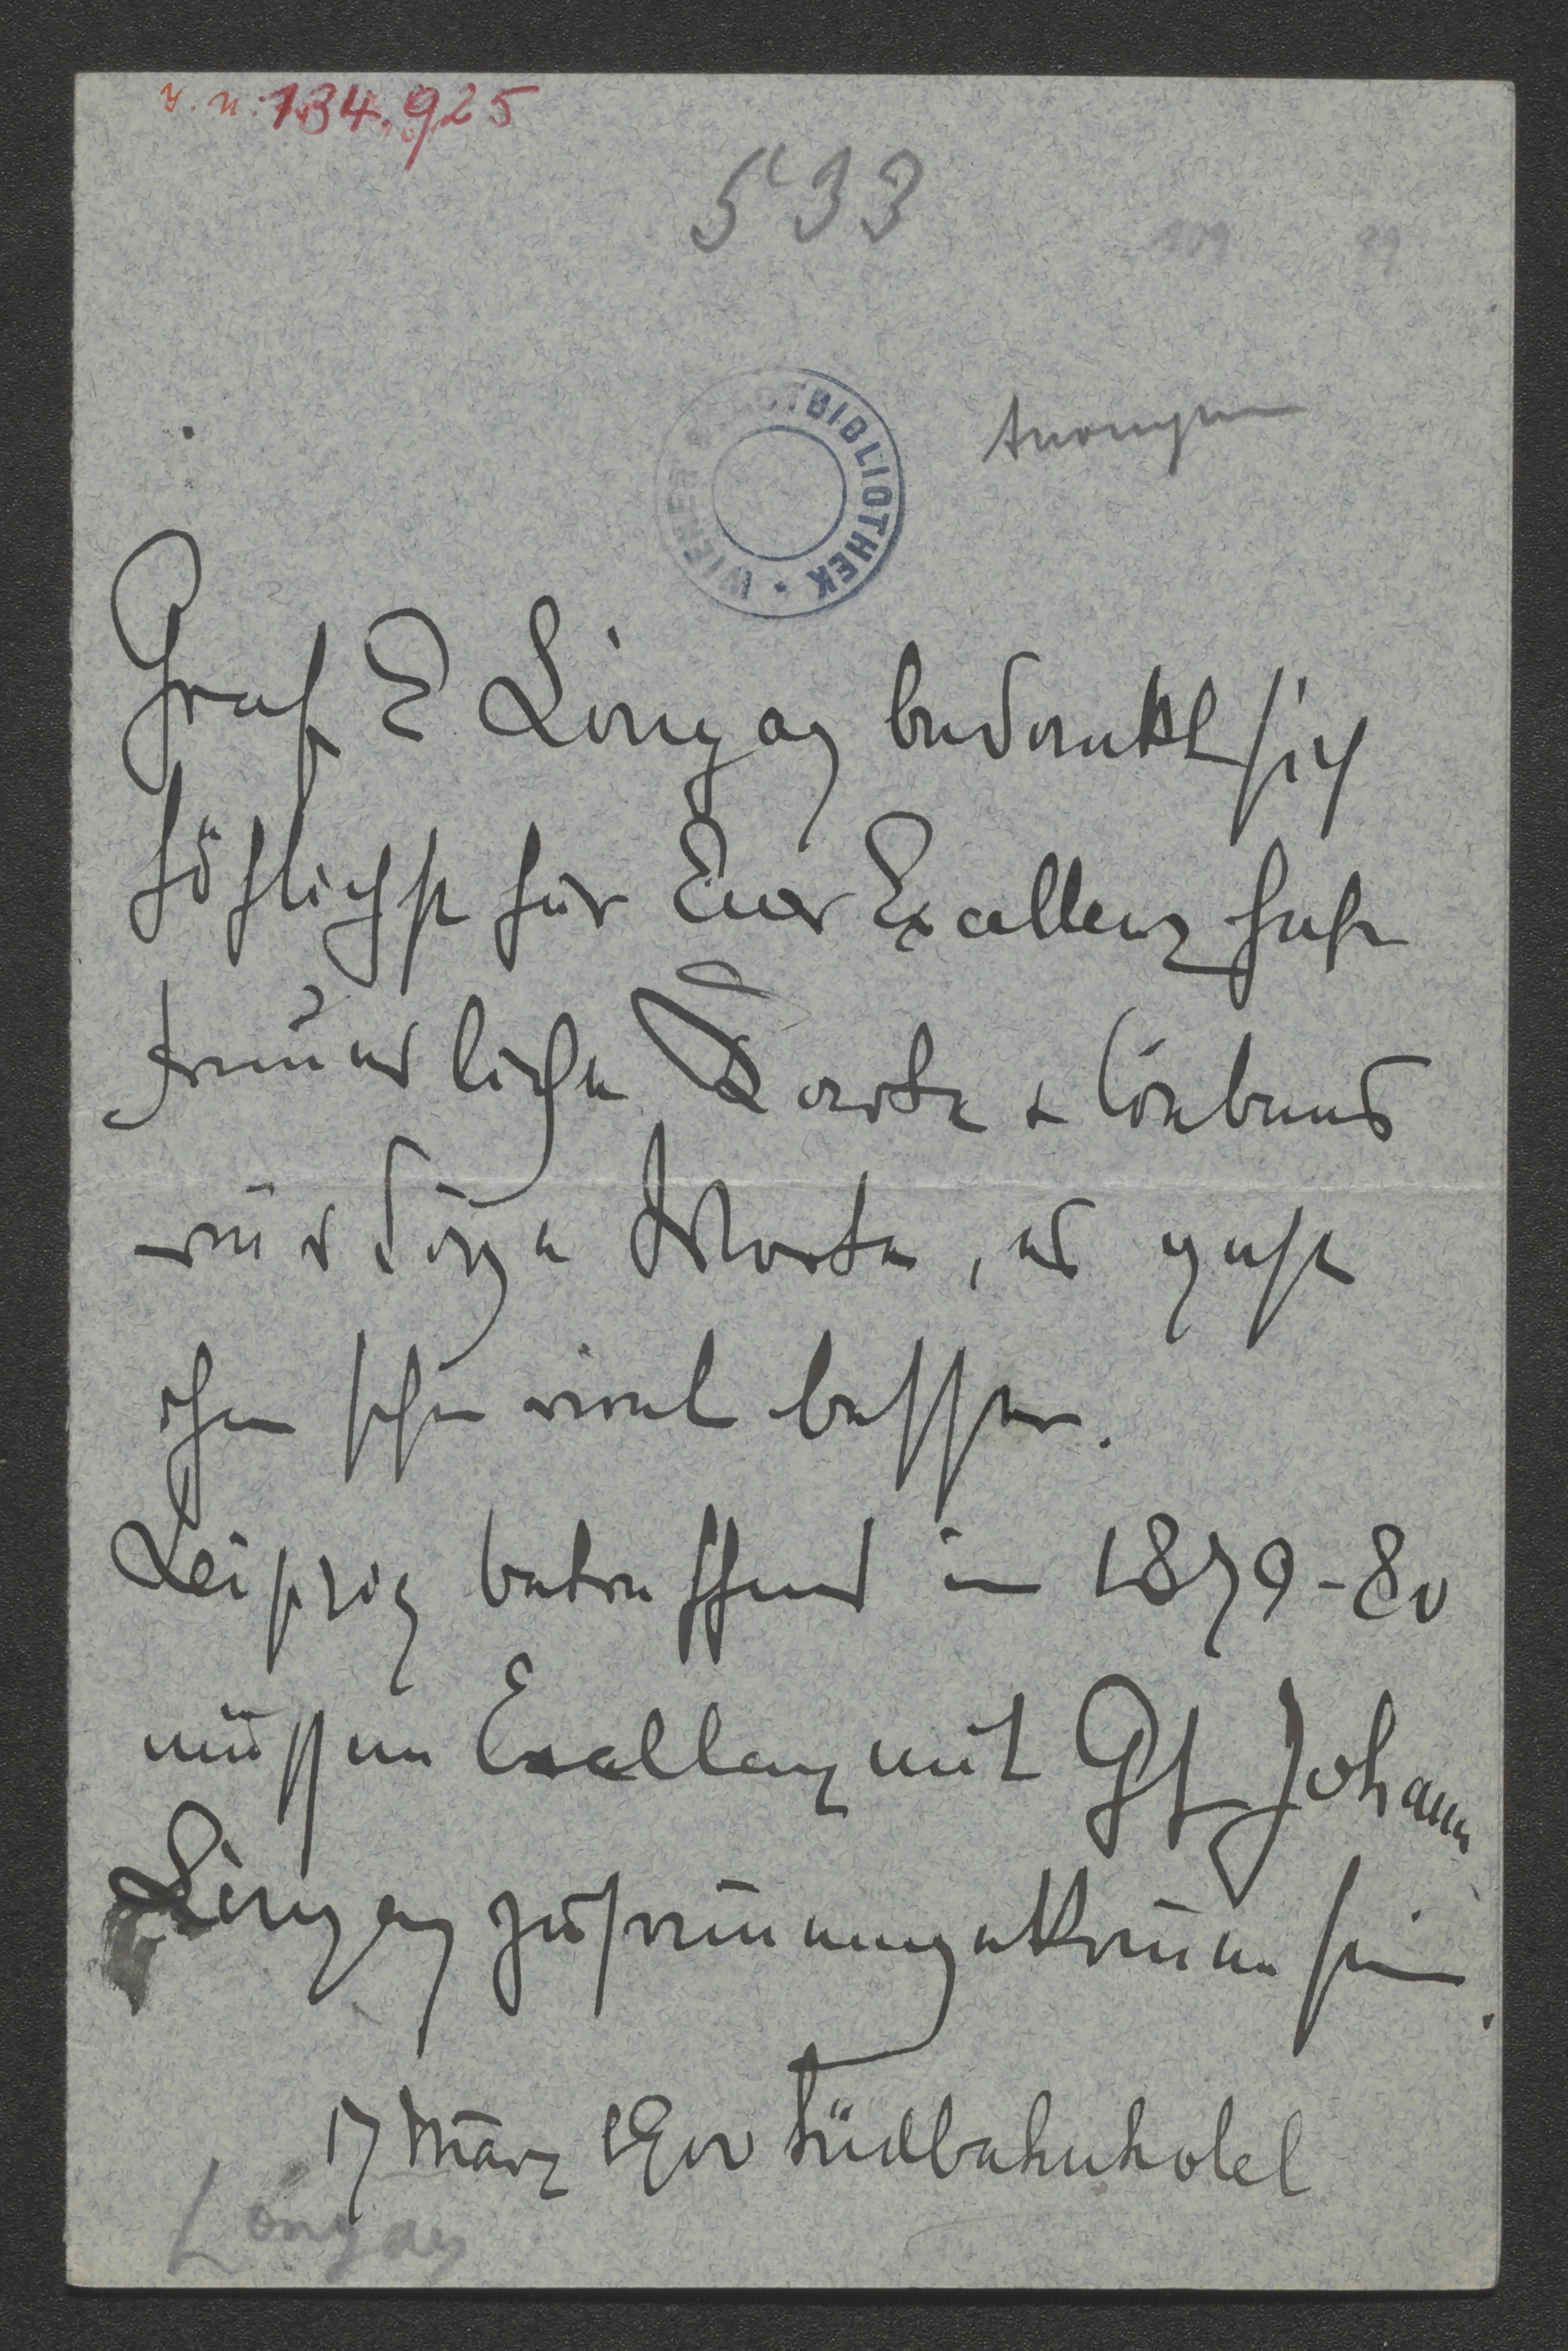 I. N. 134.925
593
109 99
WIENER STADTBIBLIOTHEK
Anonym
Graf E Lónyay bedankt sich
höflichst für Euer Excellenz sehr
freundliche Karte & liebens
würdige Worte, es geht
ihm schon viel besser.
Leipzig betreffend in 1879-80
müssen Excellenz mit Gf Johann
Lónyay zusammengekommen sein.
17 März 1900 Südbahnhotel
Lónyay